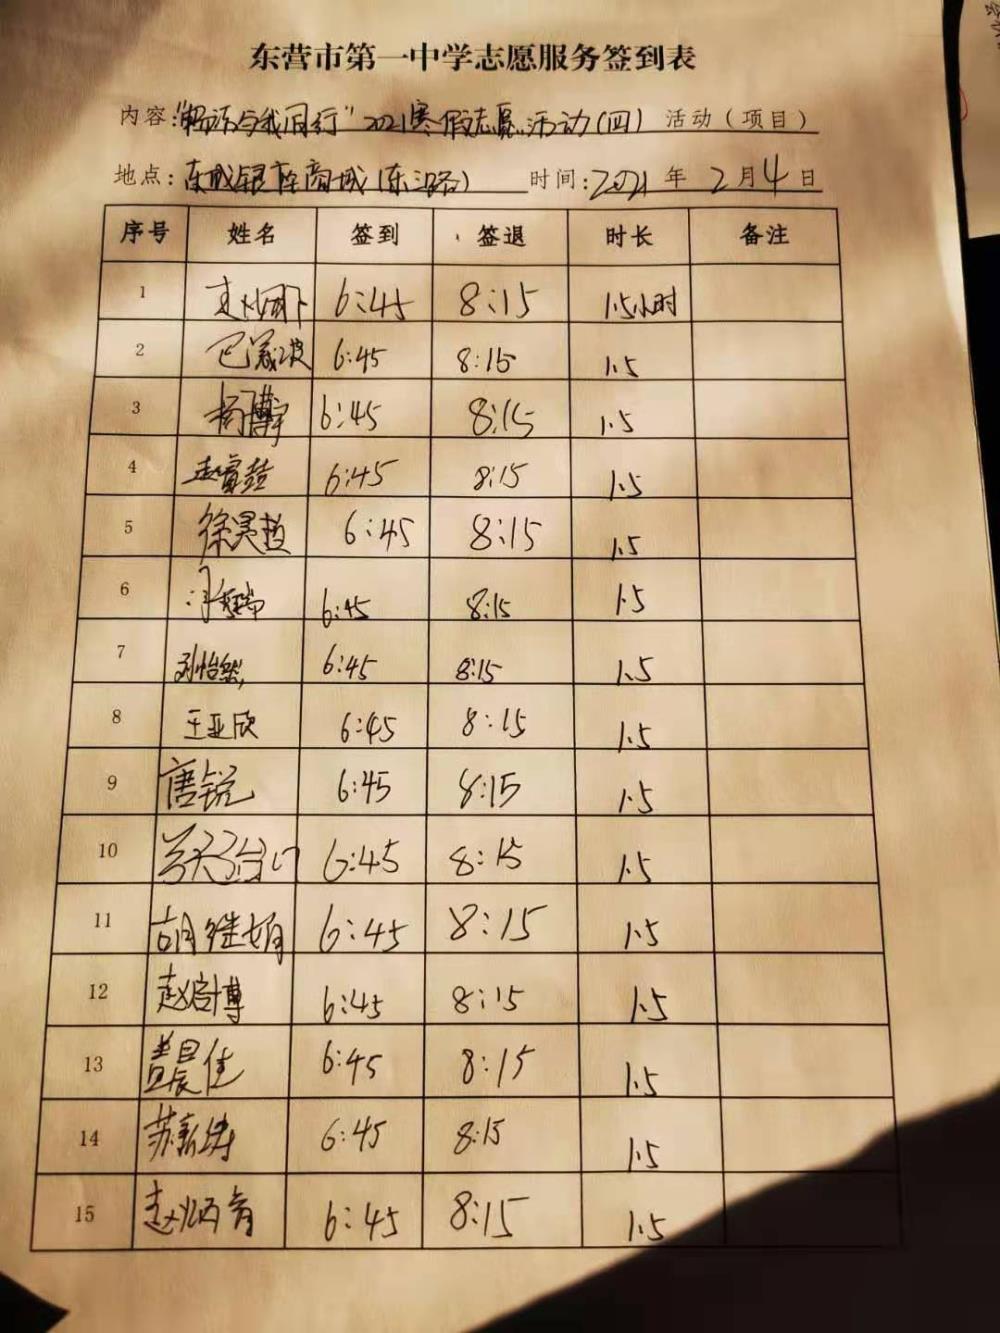 东营市第一中学志愿服务签到表
内容:"畅活与我同行"2021寒假志愿活动(四) 活动(项目)
地点:东城银座商城(东三路) 时间:2021年2月4日
序号 姓名 签到 签退 时长 备注
1 6:45 8:15 1.5小时
2 6:45 8:15 1.5
3 杨博宇 6:45 8:15 1.5
4 6:45 8:15 1.5
5 徐昊哲 6:45 8:15 1.5
6 6:45 8:15 1.5
7 刘怡然 6:45 8:15 1.5
8 王亚欣 6:45 8:15 1.5
9 唐锐 6:45 8:15 1.5
10 6:45 8:15 1.5
11 胡继娟 6:45 8:15 1.5
12 赵启博 6:45 8:15 1.5
13 盖晨佳 6:45 8:15 1.5
14 苏新涛 6:45 8:15 1.5
15 赵炳育 6:45 8:15 1.5